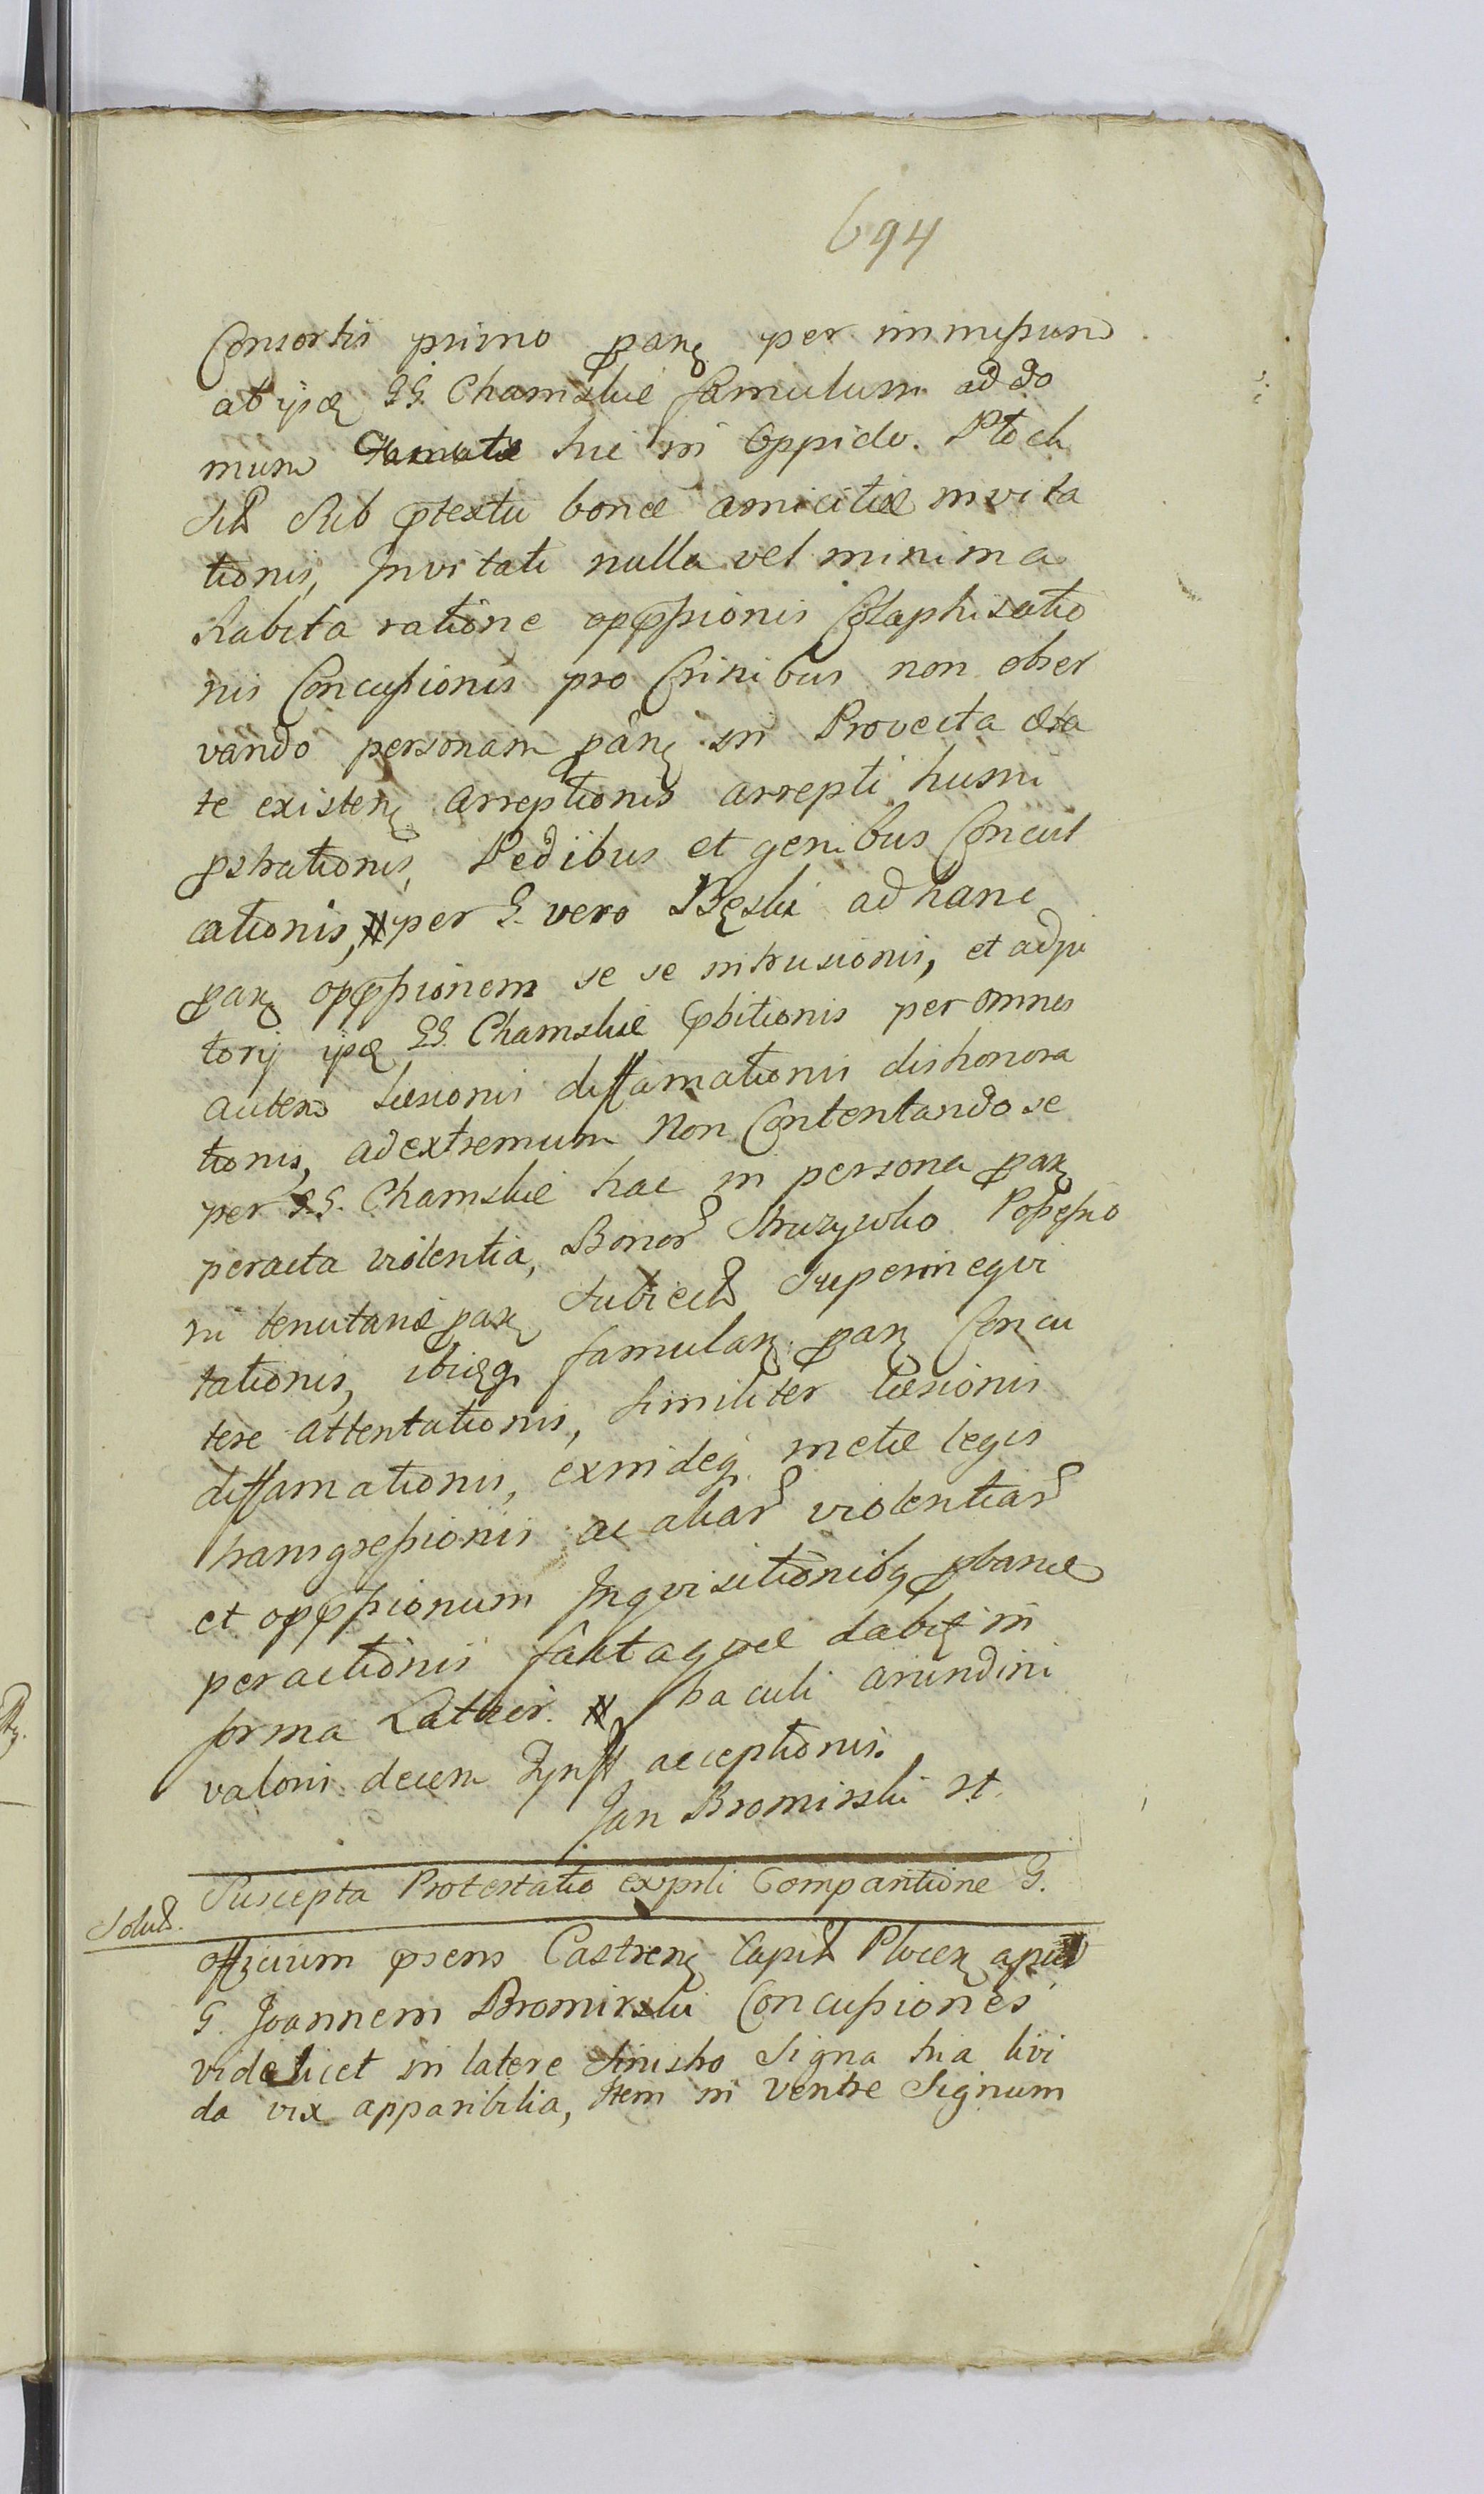 694
Consortis primo ꝑanẽ per immissum
ab ipẽ GG. Chamskie famulum ad do
mum hic in Oppido. Ptoch
Sit Sub ꝓtextu bonæ amicitiæ invita
tionis, Invitati nulla vel minima
habita ratione opꝓssionis Colaphisatio
nis Concussionis pro Crinibus non obser
vando personam ꝑanẽ in Provecta æta
te existenẽ arreptionis arrepti humi
ꝓstrationis, Pedibus et genibus Concul
cationis, per G. vero Bęski ad hanc
ꝑanẽ opꝓssionem se se intrusionis, et adju
torij ipẽ GG. Chamskie ꝓbitionis per omnes
autem Læsionis diffamationis dishonora
tionis, ad extremum Non Contentando se
per G.G. Chamskie hac in persona ꝑanẽ
peracta violentia, Bonor Struzewko Possessio
ni tenutariæ ꝑanẽ Subiect Superineqvi
tationis, ibidẽq famulanẽ ꝑanẽ Concu
tere attentationis, Similiter Læsionis
diffamationis, exindeq metæ legis
transgressionis ac aliar violentiar
et opꝓssionum Inqvisitionibq ꝓbandæ
peractionis
forma Latior. baculi arundini
valoris decem Tynff acceptionis.
Jan Bromirski
Suscepta Protestatio ex prsli Comparitione G.
Solut.
Officium ꝓsens Castrenẽ Capit Plocen apud
G. Joannem Bromirski Concussiones
videlicet in latere Sinistro Signa tria livi
da vix apparibilia, Item in ventre Signum